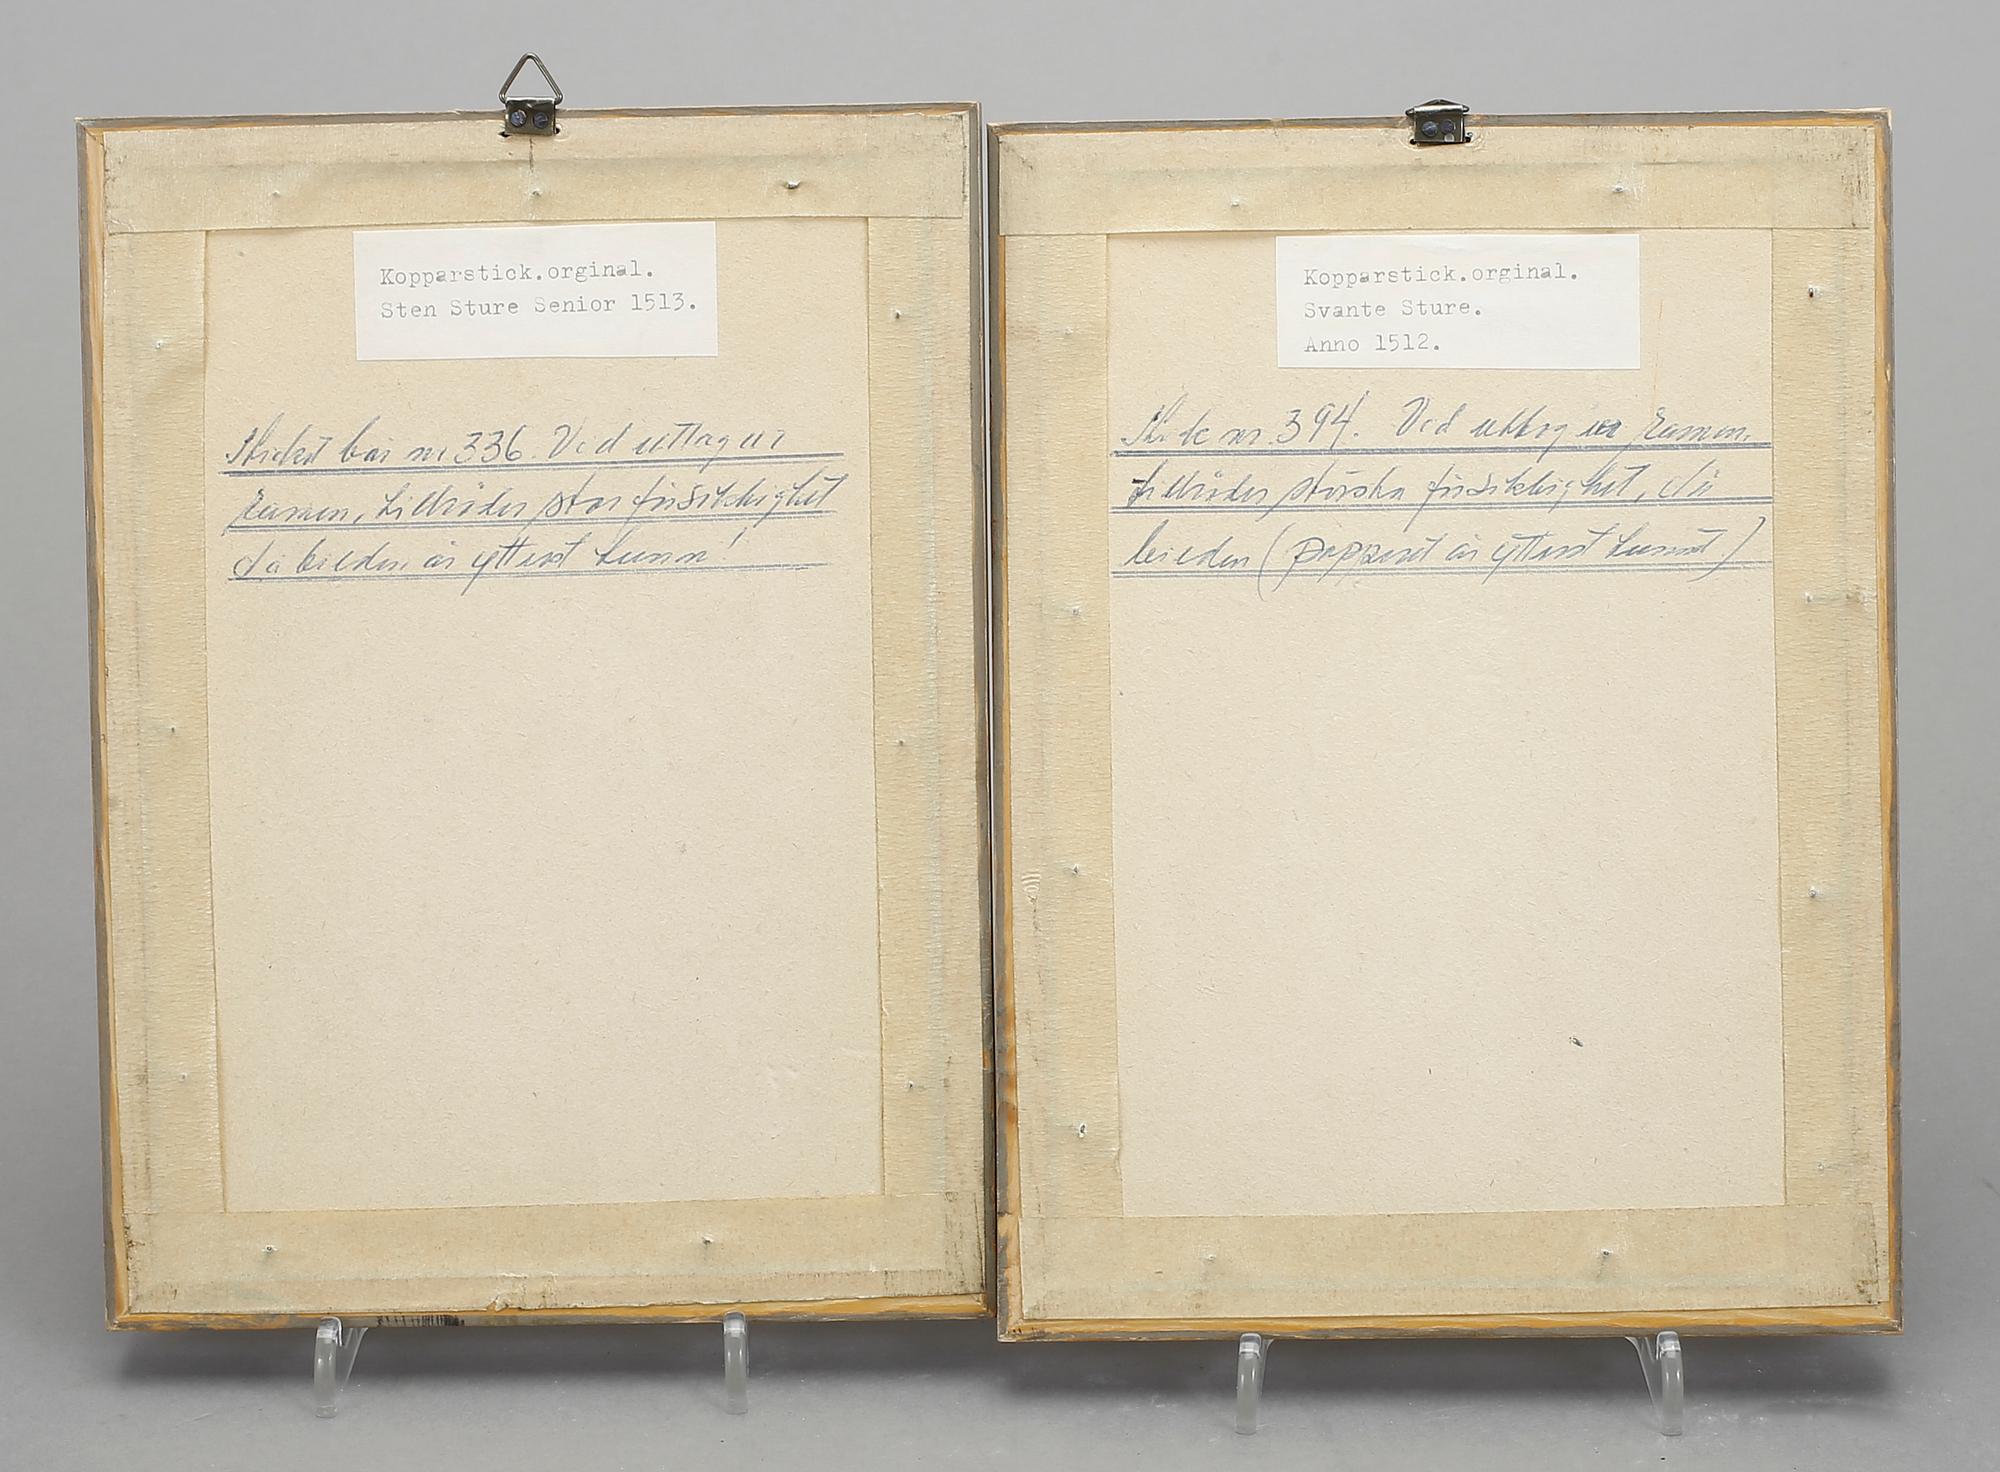 Kopparstick.orginal.
Sten Sture Senior 1513.
Sticket bär nr 336. Vid uttag ur
ramen, tillrådes stor försiktighet
då bilden är ytterst tunn!
Kopparstick.orginal.
Svante Sture.
Anno 1512.
nr. 394. Vid uttag ur ramen,
tillrådes största försiktighet, då
bilden (papperet är ytterst tunnt.)